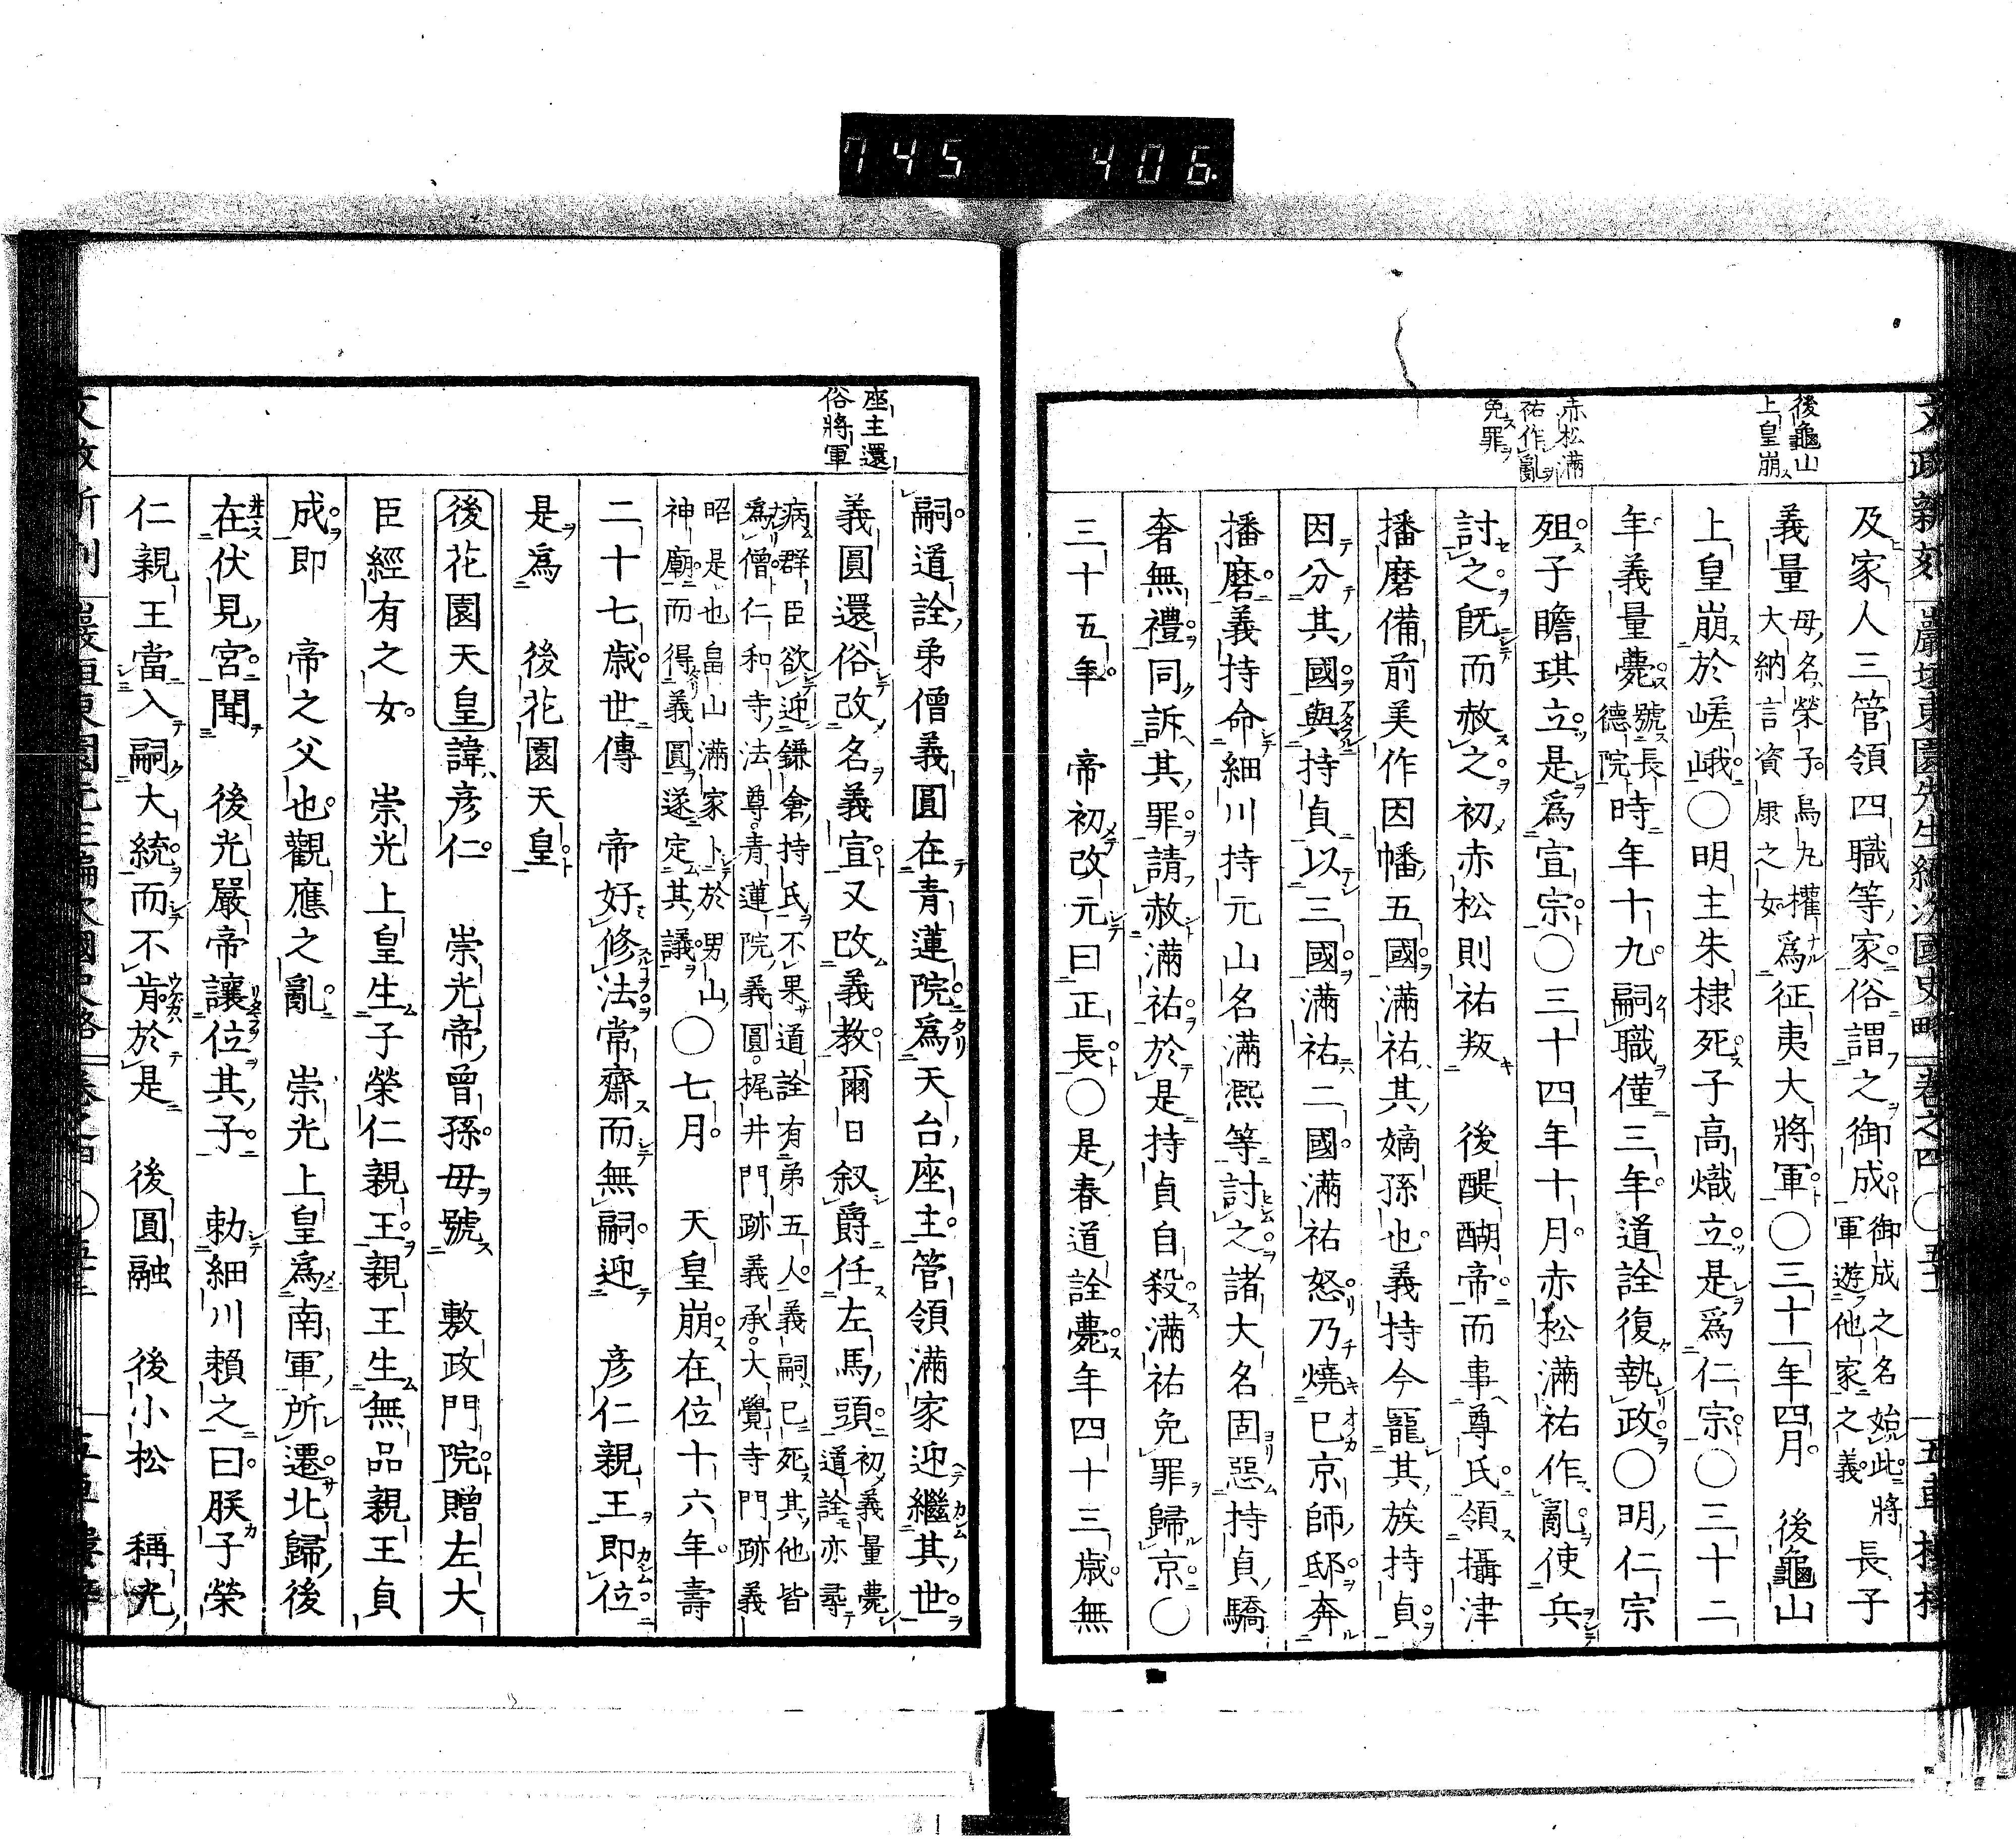 745 406.
後龜山
上皇崩
赤松滿
祐作亂
免罪
及家人三管領四職等家俗謂之御成御成之名始此將軍遊他家之義長子
義量母名榮子烏丸權大納言資康之女爲征夷大將軍〇三十一年四月 後龜山
上皇崩於嵯峨〇明主朱棣死子高熾立是爲仁宗〇三十二
年義量薨號長德院時年十九嗣職僅三年道詮復執政〇明仁宗
殂子瞻琪立是爲宣宗〇三十四年十月赤松滿祐作亂使兵
討之既而赦之初赤松則祐叛 後醍醐帝而事尊氏領攝津
播磨備前美作因幡五國滿祐其嫡孫也義持今罷其族持貞
因分其國與持貞以三國滿祐二國滿祐怒乃燒己京師邸奔
播磨義持命細川持元山名滿熙等討之諸大名固惡持貞驕
奢無禮同訴其罪請赦滿祐於是持貞自殺滿祐免罪歸京〇
三十五年 帝初改元曰正長〇是春道詮薨年四十三歳無
座主還
俗將軍
嗣道詮弟僧義圓在青蓮院爲天台座主管領滿家迎繼其世
義圓還俗改名義宣又改義教爾日叙爵任左馬頭初義量薨道詮亦尋
病群臣欲迎鎌倉持氏不果道詮有弟五人義嗣已死其他皆
爲僧仁和寺法尊青蓮院義圓梶井門跡義承大覺寺門跡義
昭是也畠山滿家卜於男山
神廟而得義圓遂定其議〇七月 天皇崩在位十六年壽
二十七歳世傳 帝好修法常齋而無嗣迎 彦仁親王即位
是爲 後花園天皇
後花園天皇諱彦仁 崇光帝曾孫母號 敷政門院贈左大
臣經有之女 崇光上皇生子榮仁親王親王生無品親王貞
成即 帝之父也觀應之亂 崇光上皇爲南軍所遷北歸後
在伏見宮聞 後光嚴帝讓位其子 勅細川賴之曰朕子榮
仁親王當入嗣大統而不肯於是 後圓融 後小松 稱光